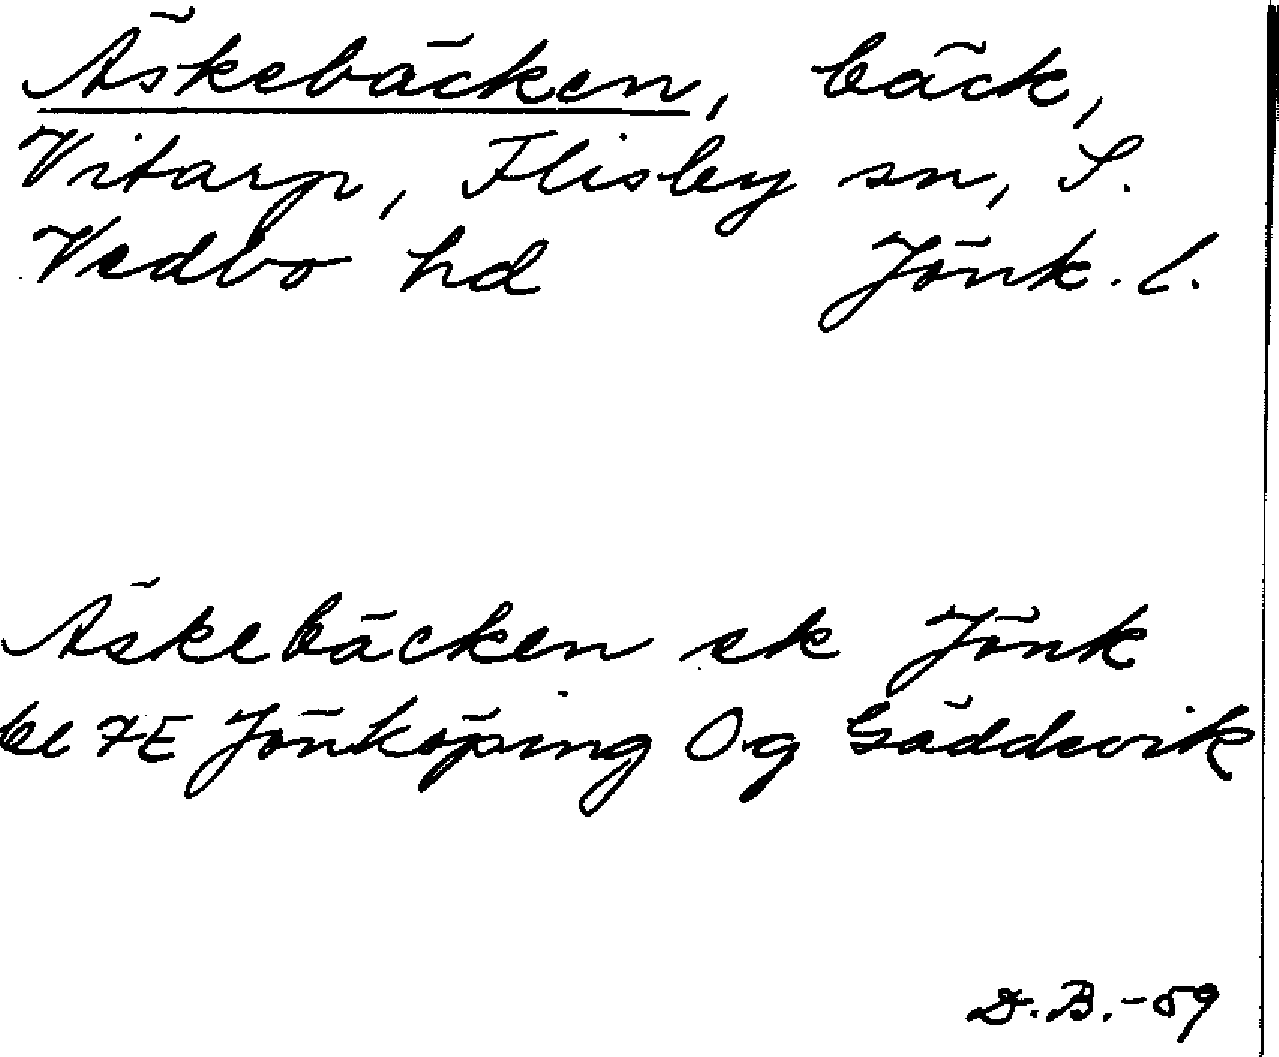 Äskebäcken, bäck,
Vitarp, Flisby sn, S.
Vedbo hd Jönk. l.
Äskebäcken ek Jönk
bl 7E Jönköping Og Gäddevik
D.B.-59